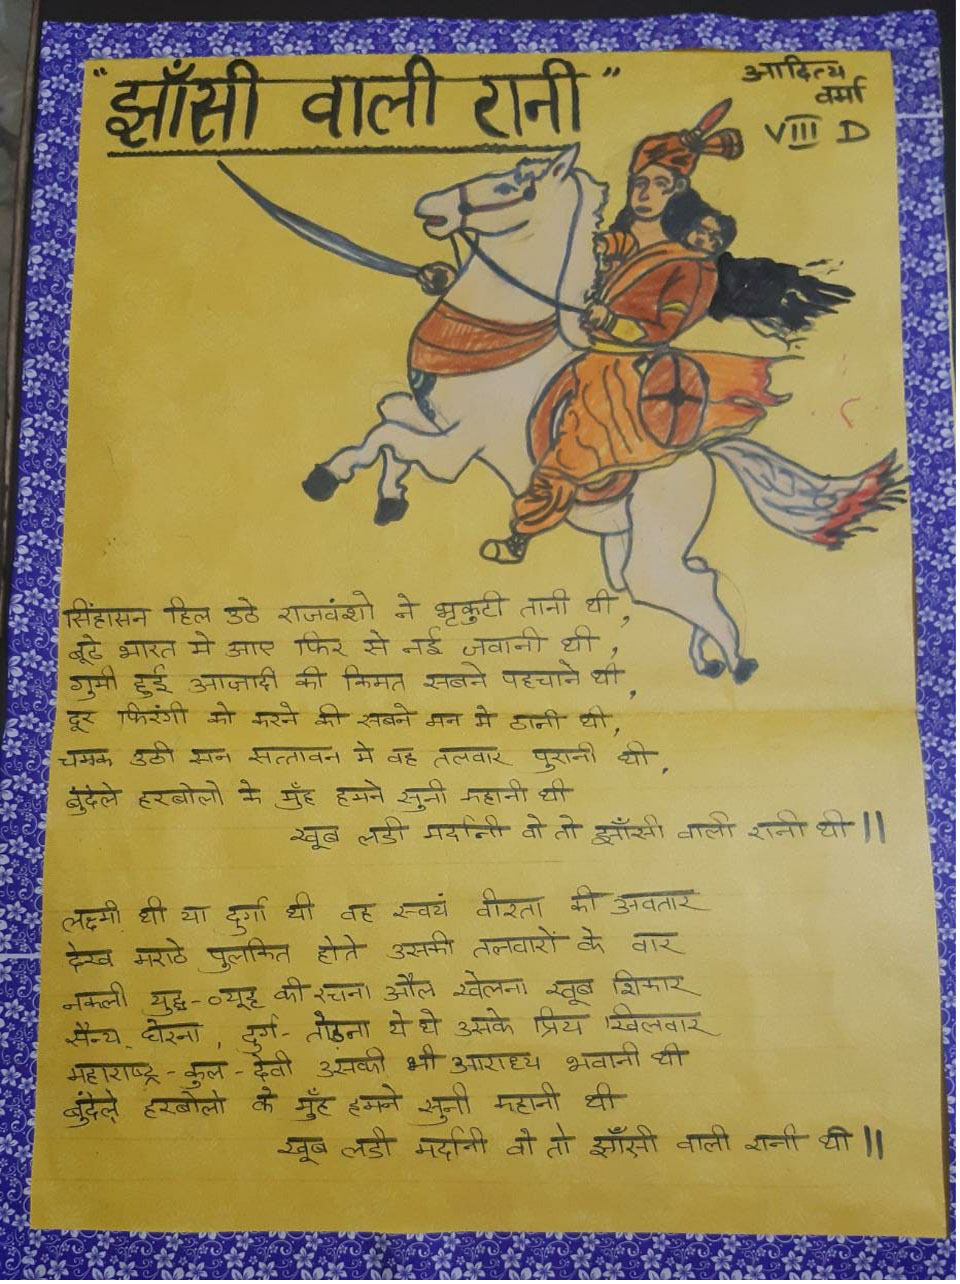 "झाँसी वाली रानी"
आदित्य
वर्मा
VIII D
सिंहासन हिल उठे राजवंशो ने भृकुटी तानी थी,
बूढे भारत मे आए फिर से नई जवानी थी,
गुमी हुई आजादी की किमत सबने पहचाने थी,
दूर फिरंगी को करने की सबने मन मे ठानी थी,
चमक उठी सन सत्तावन मे वह तलवार पुरानी थी,
बुंदेले हरबोलो के मुँह हमने सुनी कहानी थी
खूब लडी मर्दानी वो तो झाँसी वाली रानी थी ||
लक्ष्मी थी या दुर्गा थी वह स्वयं वीरता की अवतार
देख मराठे पुलकित होते उसकी तलवारों के वार
नकली युद्ध-व्यूह की रचना औल खेलना खूब शिकार
सैन्य घेरना, दुर्ग-तोड़ना ये थे उसके प्रिय खिलवार
महाराष्ट्र-कुल-देवी उसकी भी आराध्य भवानी थी
बुंदेले हरबोलो के मुँह हमने सुनी कहानी थी
खूब लडी मर्दानी वो तो झाँसी वाली रानी थी ||